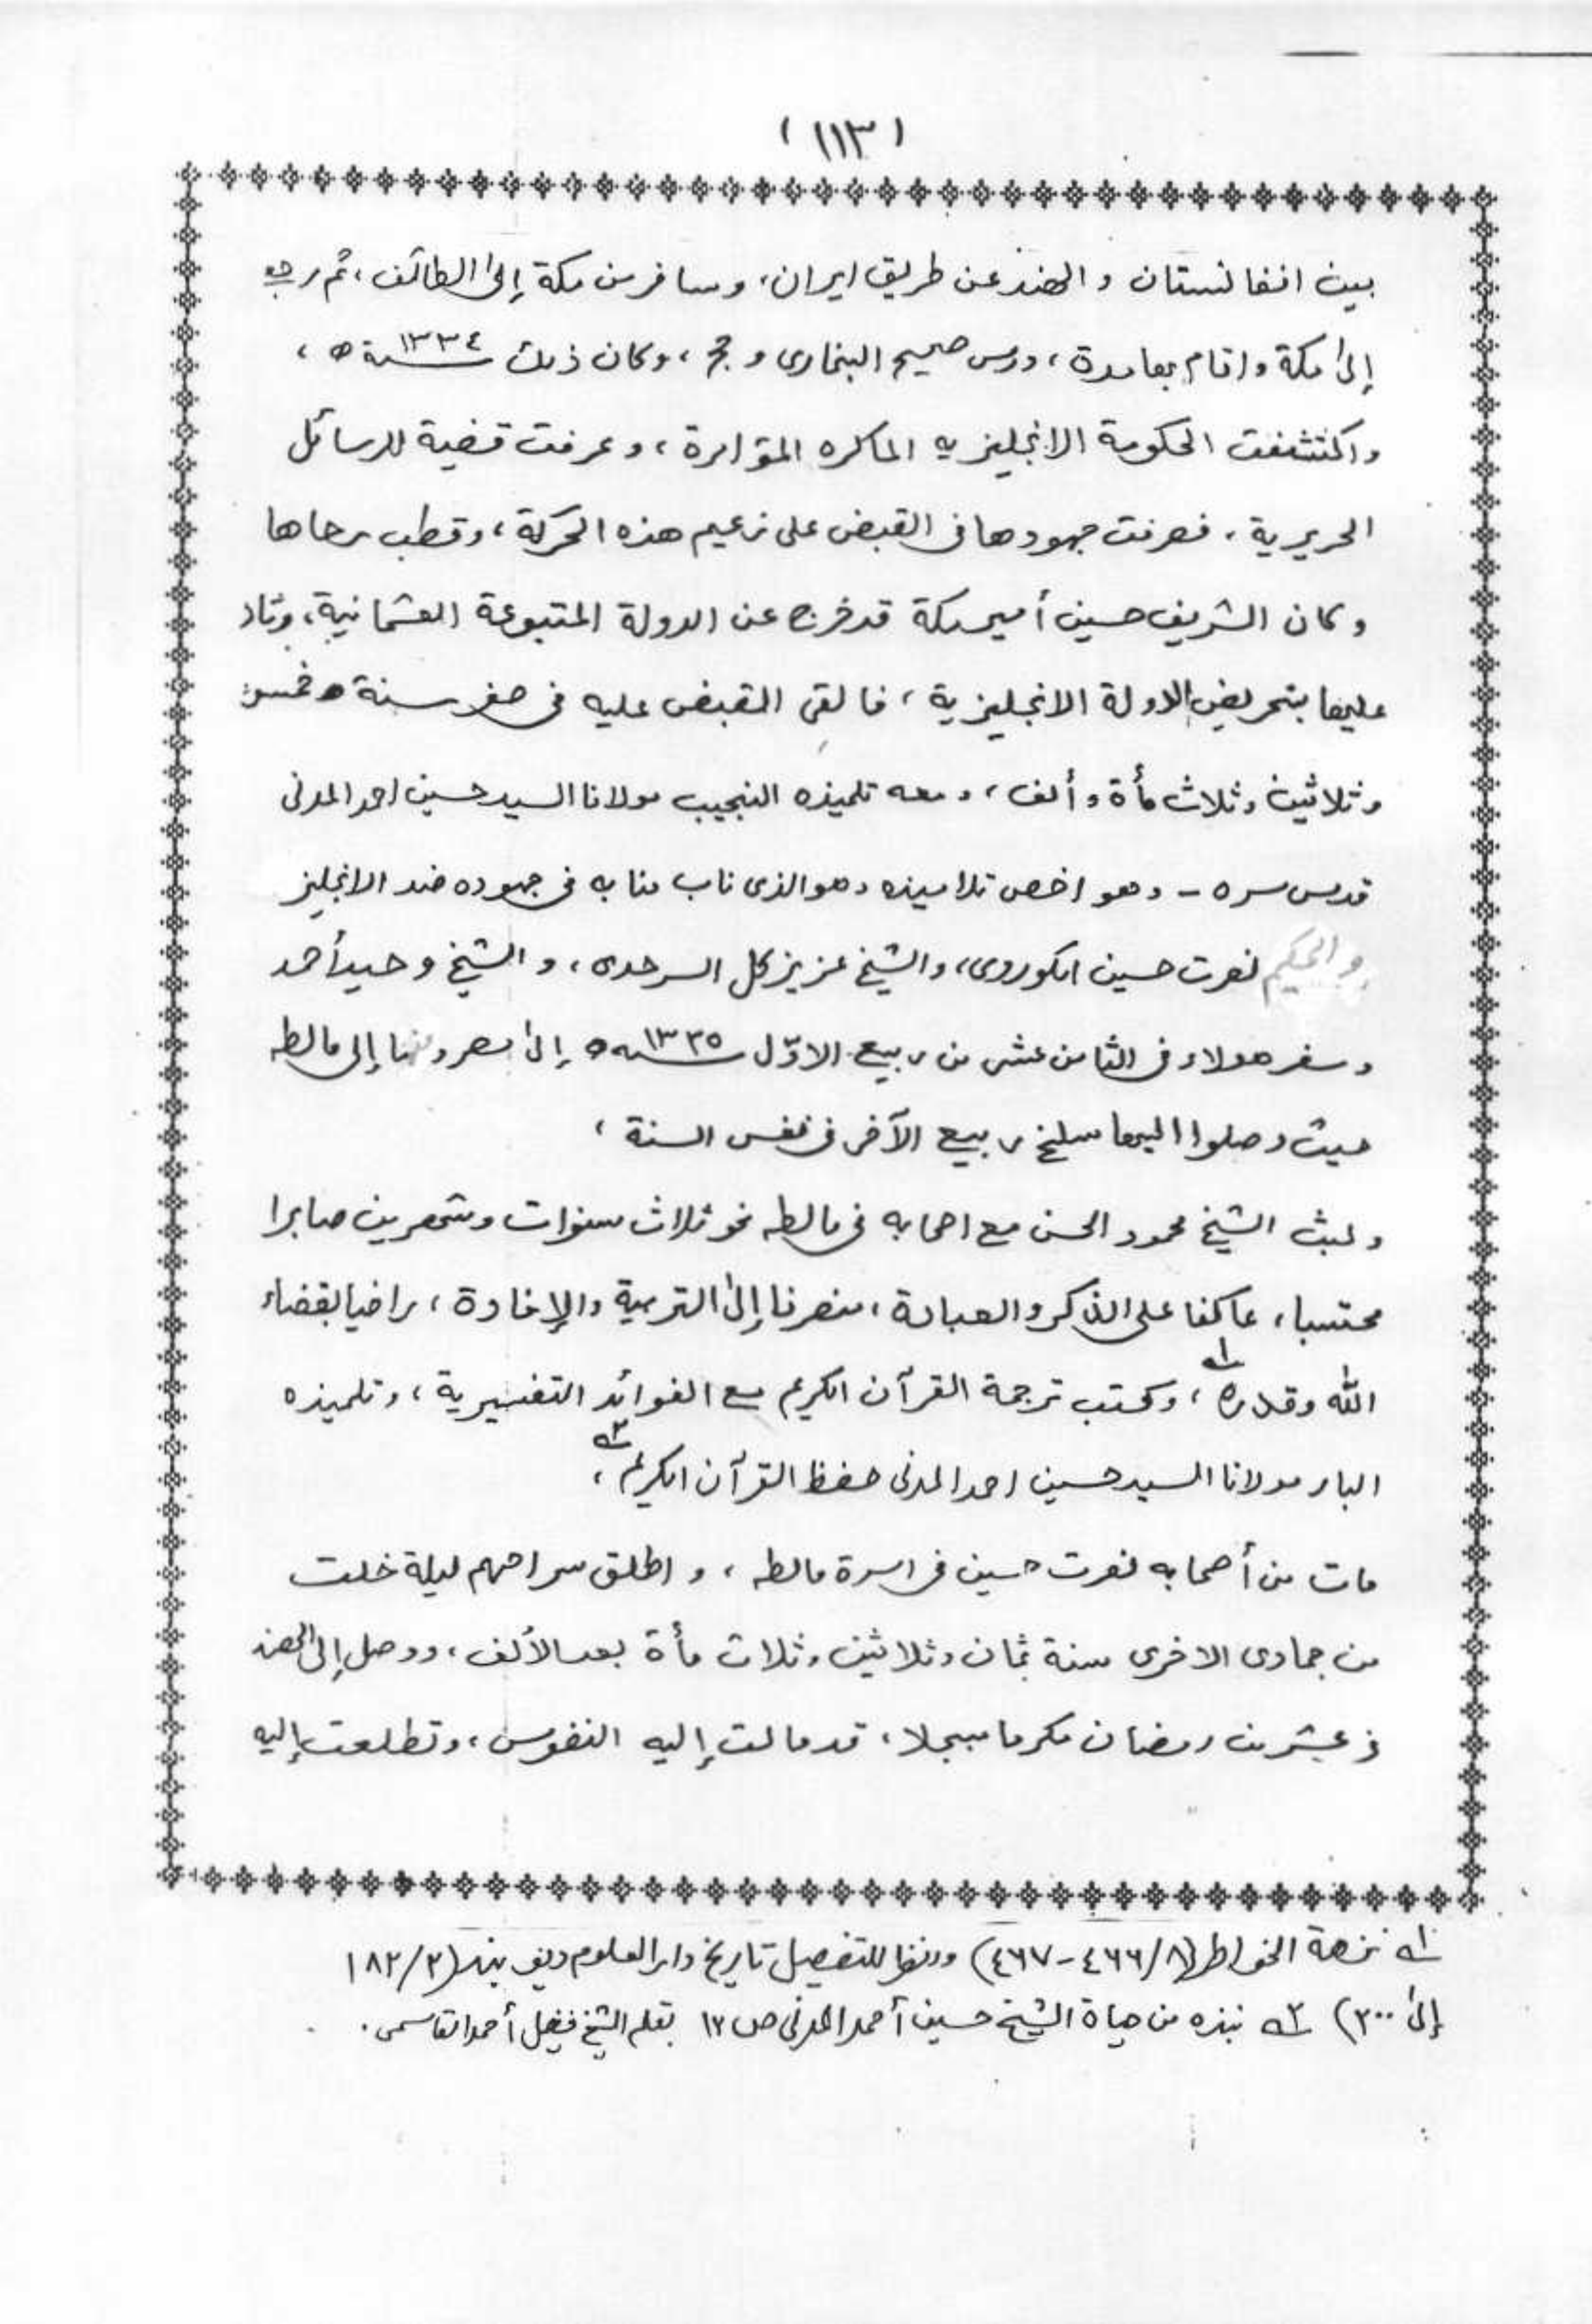 (١١٣)
بين افغانستان والهند عن طريق ايران، وسافر من مكة إلى الطائف، ثم رجع
إلى مكة واقام بها مدة، درس صحيح البخاري و حج، وكان ذلك سنة ١٣٣٤ ه،
واكتشفت الحكومة الانجليزيه الماكره المؤامرة، وعرفت قضية للرسائل
الحريرية، فصرفت جهودها في القبض على زعيم هذه الحركة، وقطب رحاها
وكان الشريف حسين أمير مكة قد خرج عن الدولة المتبوعة العثمانية، وثار
عليها بتحريض الدولة الانجليزية، فالقى القبض عليه في صفر سنة ه خمس
وثلاثين وثلاث مأة وألف، ومعه تلميذه النجيب مولانا السيد حسين احمد المدنى
قدس سره - وهو اخص تلاميذه وهو الذى ناب منابه في جهوده ضد الانجليز
والحكيم نصرت حسين الكوروى، والشيخ عزيز كل السرحدى، و الشيخ وحيد أحمد
وسفر هولاء فى الثامن عشر من ربيع الاوّل سنه ١٣٣٥ ه إلى مصر ومنها إلى مالطه
حيث وصلوا اليها سلخ ربيع الآخر فى نفس السنة،
ولبث الشيخ محمود الحسن مع اصحابه في مالطه نحو ثلاث سنوات وشهرين صابرا
محتسبا، عاكفا على الذكر والعبادة، منصرفا إلى التربية والإفادة، راضيا بقضاء
الله وقدره ١ه، وكتب ترجمة القرآن الكريم مع الفوائد التفسيرية، وتلميذه
البار مولانا السيد حسين احمد المدنى حفظ القرآن الكريم ٢ه،
مات من أصحابه نصرت حسين في اسرة مالطه، و اطلق سراحهم ليلة خلت
من جمادى الاخرى سنة ثمان وثلاثين وثلاث مأة بعد الألف، ووصل إلى الهند
في عشرين رمضان مكرما مبجلا، قد مالت إليه النفوس، وتطلعت إليه
١ه نزهة الخواطر (٨/٤٦٦-٤٦٧) وانظر للتفصيل تاريخ دار العلوم ديو بند (٢/١٨٢
إلى ٢٠٠) ٢ه نبذه من حياة الشيخ حسين أحمد المدنى ص ١٢ بقلم الشيخ فضيل أحمد القاسمى.